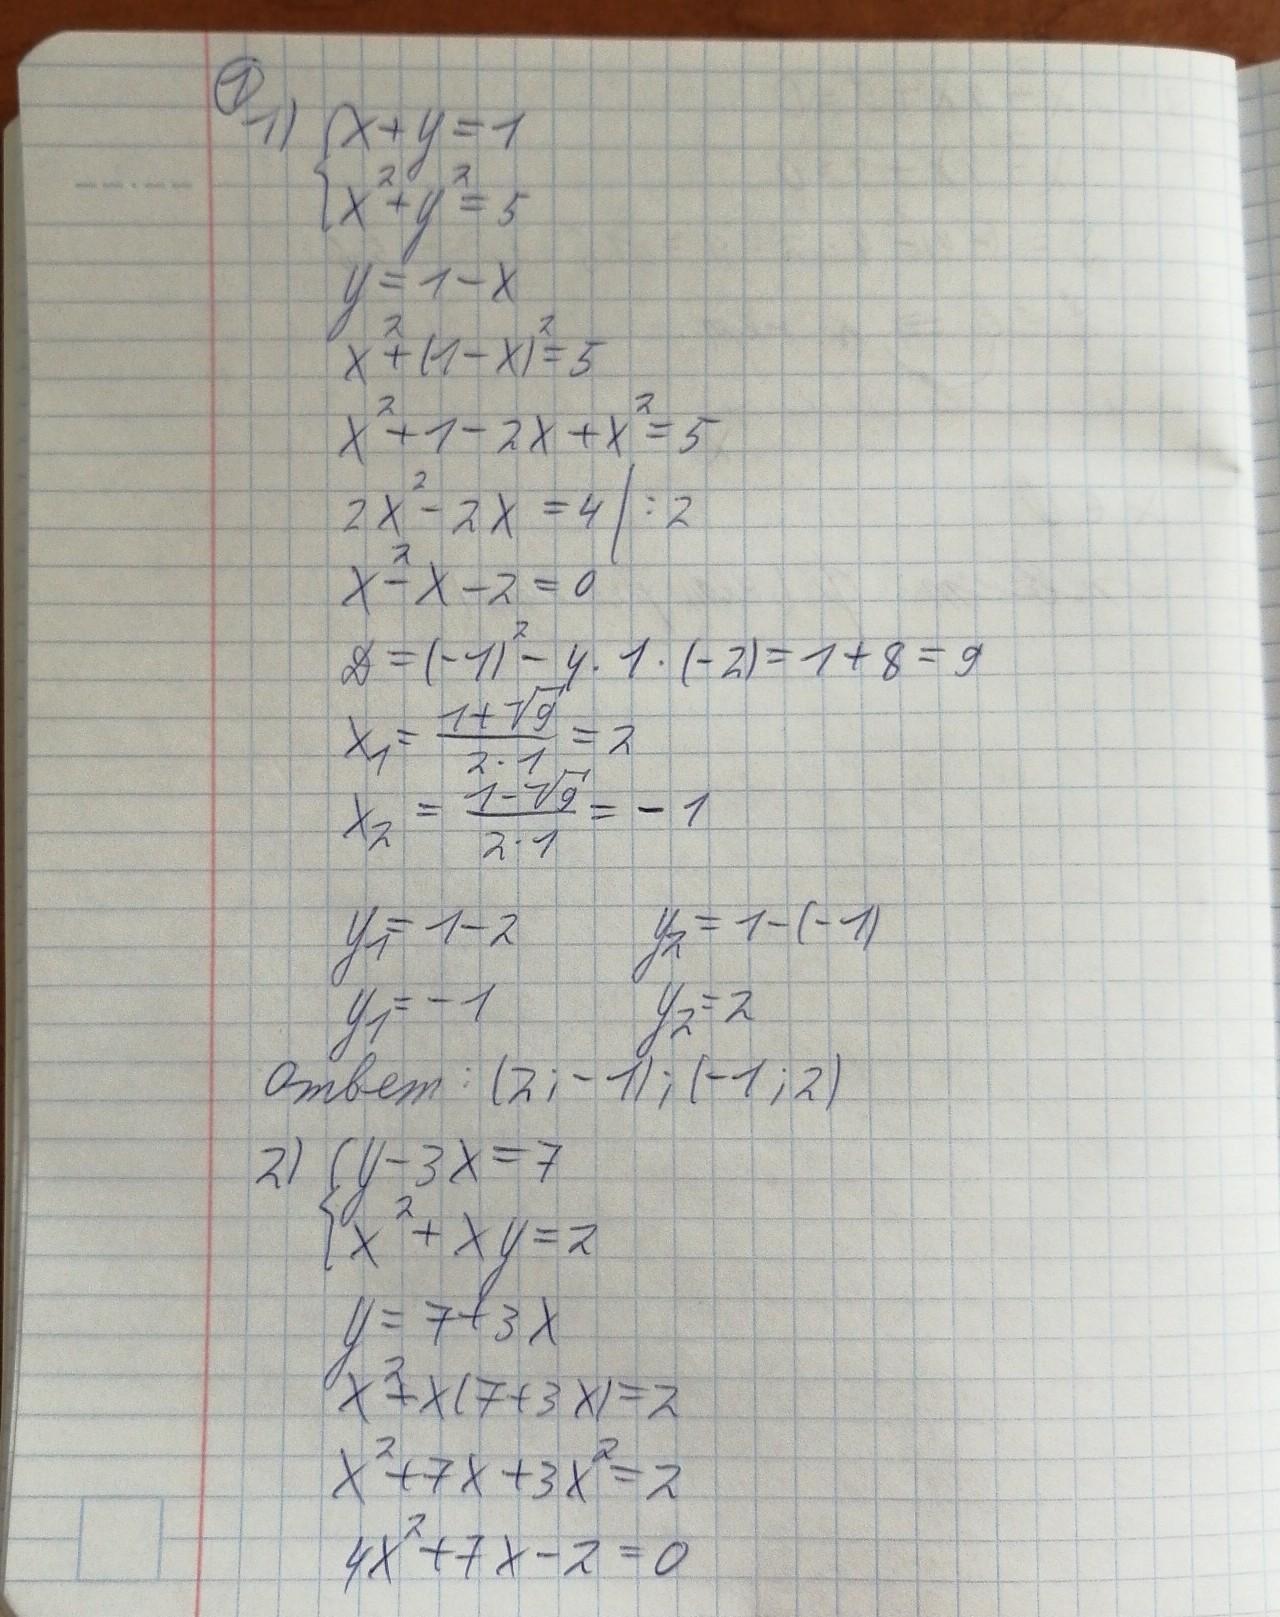 ①
1) { x+y=1
x²+y²=5
y=1-x
x²+(1-x)²=5
x²+1-2x+x²=5
2x²-2x=4 |:2
x²-x-2=0
D=(-1)²-4·1·(-2)=1+8=9
x₁=(1+√9)/(2·1)=2
x₂=(1-√9)/(2·1)=-1
y₁=1-2 y₂=1-(-1)
y₁=-1 y₂=2
Ответ: (2;-1);(-1;2)
2) { y-3x=7
x²+xy=2
y=7+3x
x²+x(7+3x)=2
x²+7x+3x²=2
4x²+7x-2=0